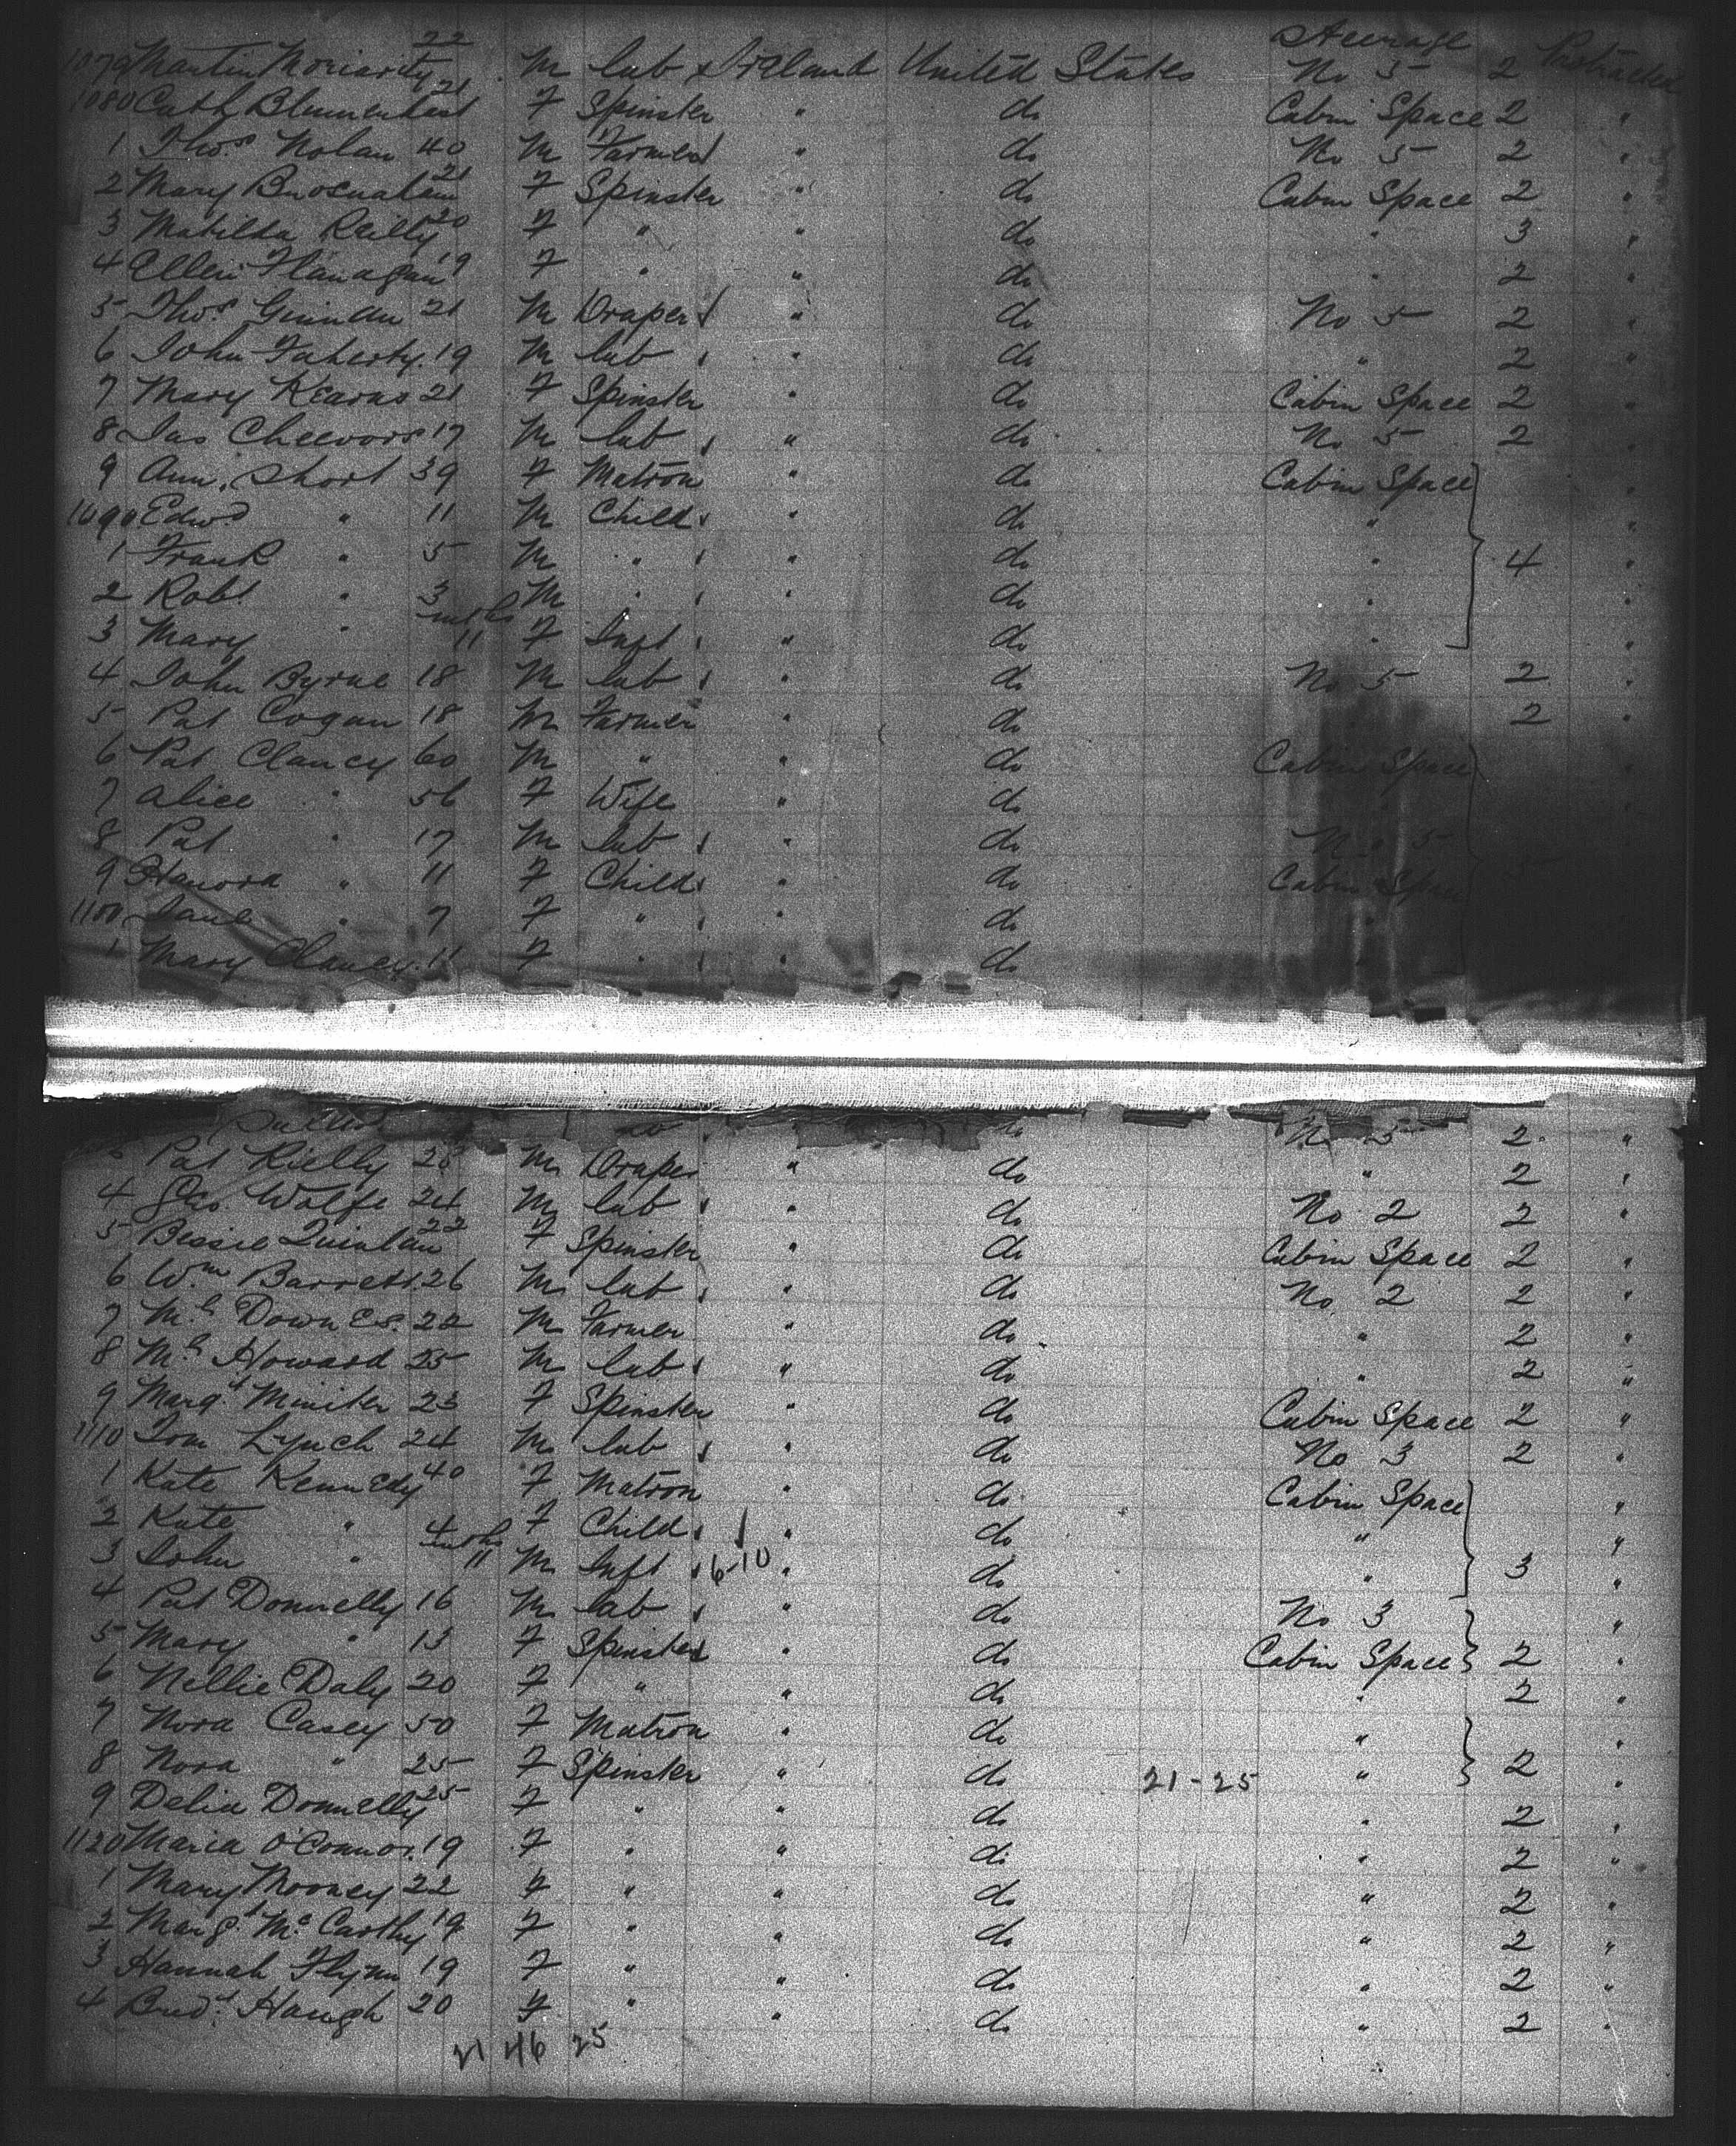 Steerage
1079 Martin Moriarity 22 M lab Ireland United States No 5 2 Protracted
1080 Cath Blumerhast 21 F Spinster " do Cabin Space 2 "
1 Thos Nolan 40 M Farmer " do No 5 2 "
2 Mary Brosnahan 21 F Spinster " do Cabin Space 2 "
3 Matilda Reilly 20 F " " do " 3 "
4 Ellen Flanagan 19 F " " do " 2 "
5 Thos Guinan 21 M Draper " do No 5 2 "
6 John Faherty 19 M lab " do " 2 "
7 Mary Kearns 21 F Spinster " do Cabin Space 2 "
8 Jas Cheevors 17 M lab " do No 5 2 "
9 Ann Short 39 F Matron " do Cabin Space "
1090 Edwd " 11 M Child " do " "
1 Frank " 5 M " " do " 4 "
2 Robt " 3 M " " do " "
3 Mary " mths 11 F Inft " do " "
4 John Byrne 18 M lab " do No 5 2 "
5 Pat Cogan 18 M Farmer " do " 2 "
6 Pat Clancy 60 M " " do Cabin Space "
7 Alice " 56 F Wife " do "
8 Pat " 17 M lab " do No 5
9 Hanora " 11 F Child " do Cabin Space
1100 Jane " 7 F " " do "
1 Mary Clancy 11 F " " do
do No 5 2 "
Pat Rielly 28 M Draper " do " 2 "
4 Geo. Wolfe 24 M lab " do No 2 2 "
5 Bessie Quinlan 22 F Spinster " do Cabin Space 2 "
6 Wm Barrett 26 M lab " do No 2 2 "
7 Ml Downes 22 M Farmer " do " 2 "
8 Ml Howard 25 M lab " do " 2 "
9 Margt Miniter 23 F Spinster " do Cabin Space 2 "
1110 Tom Lynch 24 M lab " do No 3 2 "
1 Kate Kennedy 40 F Matron " do Cabin Space "
2 Kate " 4 F Child " do " "
3 John " mths 11 M Inft 6-10 " do " 3 "
4 Pat Donnelly 16 M lab " do No 3 "
5 Mary " 13 F Spinster " do Cabin Space 2 "
6 Nellie Daly 20 F " " do " 2 "
7 Nora Casey 50 F Matron " do " "
8 Nora " 25 F Spinster " do 21-25 " 2 "
9 Delia Donnelly 25 F " " do " 2 "
1120 Maria O'Connor 19 F " " do " 2 "
1 Mary Mooney 22 F " " do " 2 "
2 Margt McCarthy 19 F " " do " 2 "
3 Hannah Flynn 19 F " " do " 2 "
4 Bridt Haugh 20 F " " do " 2 "
21 46 25